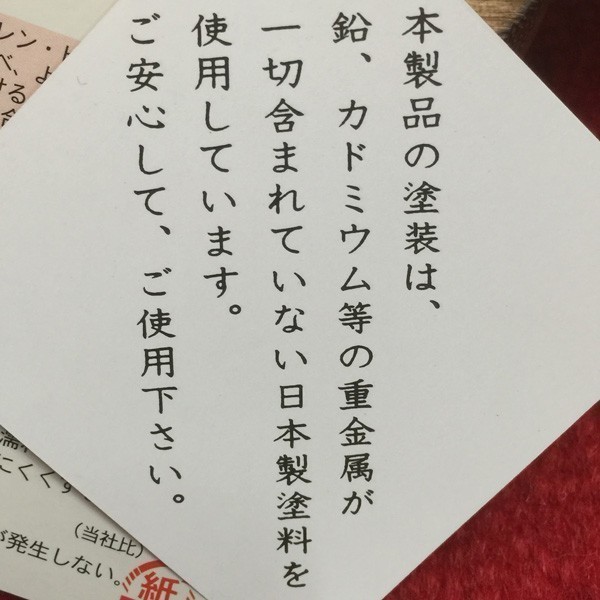 本製品の塗装は、
鉛、カドミウム等の重金属が
一切含まれていない日本製塗料を
使用しています。
ご安心して、ご使用下さい。
レン・
べ、よ
ける
にくくす
(当社比)
が発生しない。
紙